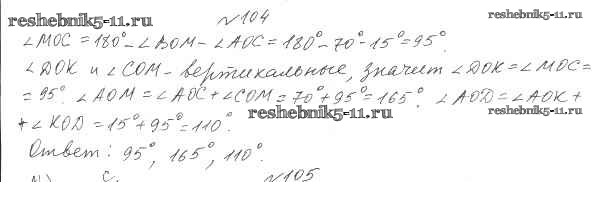 reshebnik5-11.ru №104 reshebnik5-11.ru
∠MOC = 180° - ∠BOM - ∠AOC = 180° - 70° - 15° = 95°.
∠DOK и ∠COM - вертикальные, значит ∠DOK = ∠MOC =
= 95°. ∠AOM = ∠AOC + ∠COM = 70° + 95° = 165°. ∠AOD = ∠AOK +
reshebnik5-11.ru reshebnik5-11.ru
+ ∠KOD = 15° + 95° = 110°.
Ответ: 95°, 165°, 110°.
№105